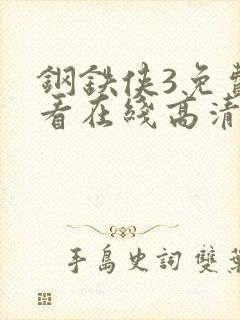 鋼鉄俠3免費
看在綫高清
手島史詞 雙葉